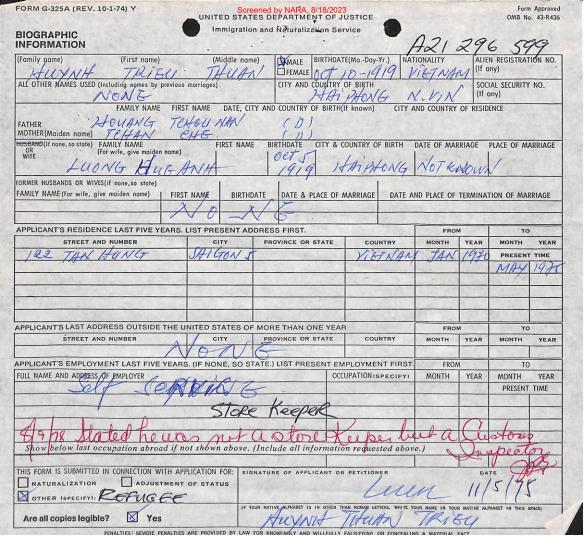 Screened by NARA, 8/18/2023
FORM G-325A (REV. 10-1-74) Y
UNITED STATES DEPARTMENT OF JUSTICE
Form Approved
OMB No. 43-R436
Immigration and Naturalization Service
BIOGRAPHIC
INFORMATION
A21 296 599
(Family name) (First name) (Middle name) MALE FEMALE BIRTHDATE(Mo.-Day-Yr.) NATIONALITY ALIEN REGISTRATION NO. (If any)
HUYNH TRIEU THUAN OCT 10-1919 VIETNAM
ALL OTHER NAMES USED (Including names by previous marriages) CITY AND COUNTRY OF BIRTH SOCIAL SECURITY NO. (If any)
NONE HAIPHONG N.VIN
FAMILY NAME FIRST NAME DATE, CITY AND COUNTRY OF BIRTH(If known) CITY AND COUNTRY OF RESIDENCE
FATHER HOUANG TCHOU NAN (D)
MOTHER(Maiden name) TCHAN CHE (D)
HUSBAND(If none, so state) OR WIFE FAMILY NAME (For wife, give maiden name) FIRST NAME BIRTHDATE CITY & COUNTRY OF BIRTH DATE OF MARRIAGE PLACE OF MARRIAGE
LUONG HUE ANH OCT 5 1919 HAIPHONG NOT KNOWN
FORMER HUSBANDS OR WIVES(if none, so state)
FAMILY NAME (For wife, give maiden name) FIRST NAME BIRTHDATE DATE & PLACE OF MARRIAGE DATE AND PLACE OF TERMINATION OF MARRIAGE
NO NE
APPLICANT'S RESIDENCE LAST FIVE YEARS. LIST PRESENT ADDRESS FIRST. FROM TO
STREET AND NUMBER CITY PROVINCE OR STATE COUNTRY MONTH YEAR MONTH YEAR
122 TAN HUNG SAIGON 5 VIETNAM JAN 1970 PRESENT TIME
MAY 1975
APPLICANT'S LAST ADDRESS OUTSIDE THE UNITED STATES OF MORE THAN ONE YEAR FROM TO
STREET AND NUMBER CITY PROVINCE OR STATE COUNTRY MONTH YEAR MONTH YEAR
NONE
APPLICANT'S EMPLOYMENT LAST FIVE YEARS. (IF NONE, SO STATE.) LIST PRESENT EMPLOYMENT FIRST. FROM TO
FULL NAME AND ADDRESS OF EMPLOYER OCCUPATION(SPECIFY) MONTH YEAR MONTH YEAR
Self PRESENT TIME
STORE KEEPER
8/9/78 Stated he was not a store keeper but a Customs
Inspector
Show below last occupation abroad if not shown above. (Include all information requested above.)
THIS FORM IS SUBMITTED IN CONNECTION WITH APPLICATION FOR: SIGNATURE OF APPLICANT OR PETITIONER DATE
NATURALIZATION ADJUSTMENT OF STATUS
OTHER (SPECIFY): REFUGEE 11/5/75
IF YOUR NATIVE ALPHABET IS IN OTHER THAN ROMAN LETTERS, WRITE YOUR NAME IN YOUR NATIVE ALPHABET IN THIS SPACE:
Are all copies legible? Yes HUYNH THUAN TRIEU
PENALTIES: SEVERE PENALTIES ARE PROVIDED BY LAW FOR KNOWINGLY AND WILLFULLY FALSIFYING OR CONCEALING A MATERIAL FACT.